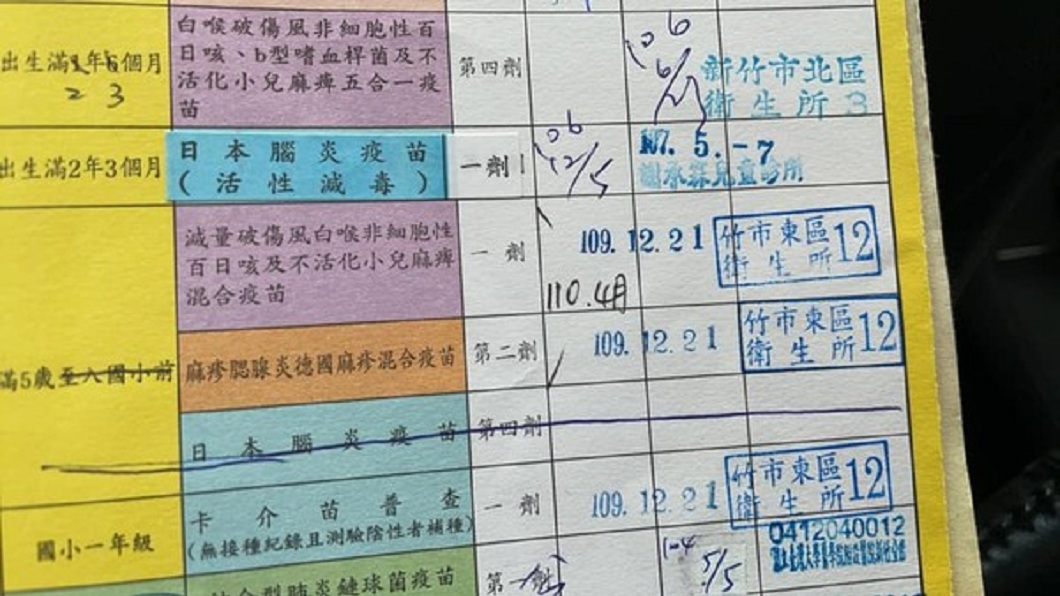 白喉破傷風非細胞性百
日咳、b型嗜血桿菌及不
活化小兒麻痺五合一疫
苗
出生滿1年6個月
2 3
第四劑
106
新竹市北區
衛生所 3
出生滿2年3個月
日本腦炎疫苗
(活性減毒)
一劑
106
12/5
107.5.-7
減量破傷風白喉非細胞性
百日咳及不活化小兒麻痺
混合疫苗
一劑
110.4月
109.12.21
竹市東區
衛生所
12
滿5歲至入國小前
麻疹腮腺炎德國麻疹混合疫苗
第二劑
109.12.21
竹市東區
衛生所
12
日本腦炎疫苗
第四劑
國小一年級
卡介苗普查
(無接種紀錄且測驗陰性者補種)
一劑
109.12.21
竹市東區
衛生所
12
0412040012
結合型肺炎鏈球菌疫苗
第一劑
1-4
5/5